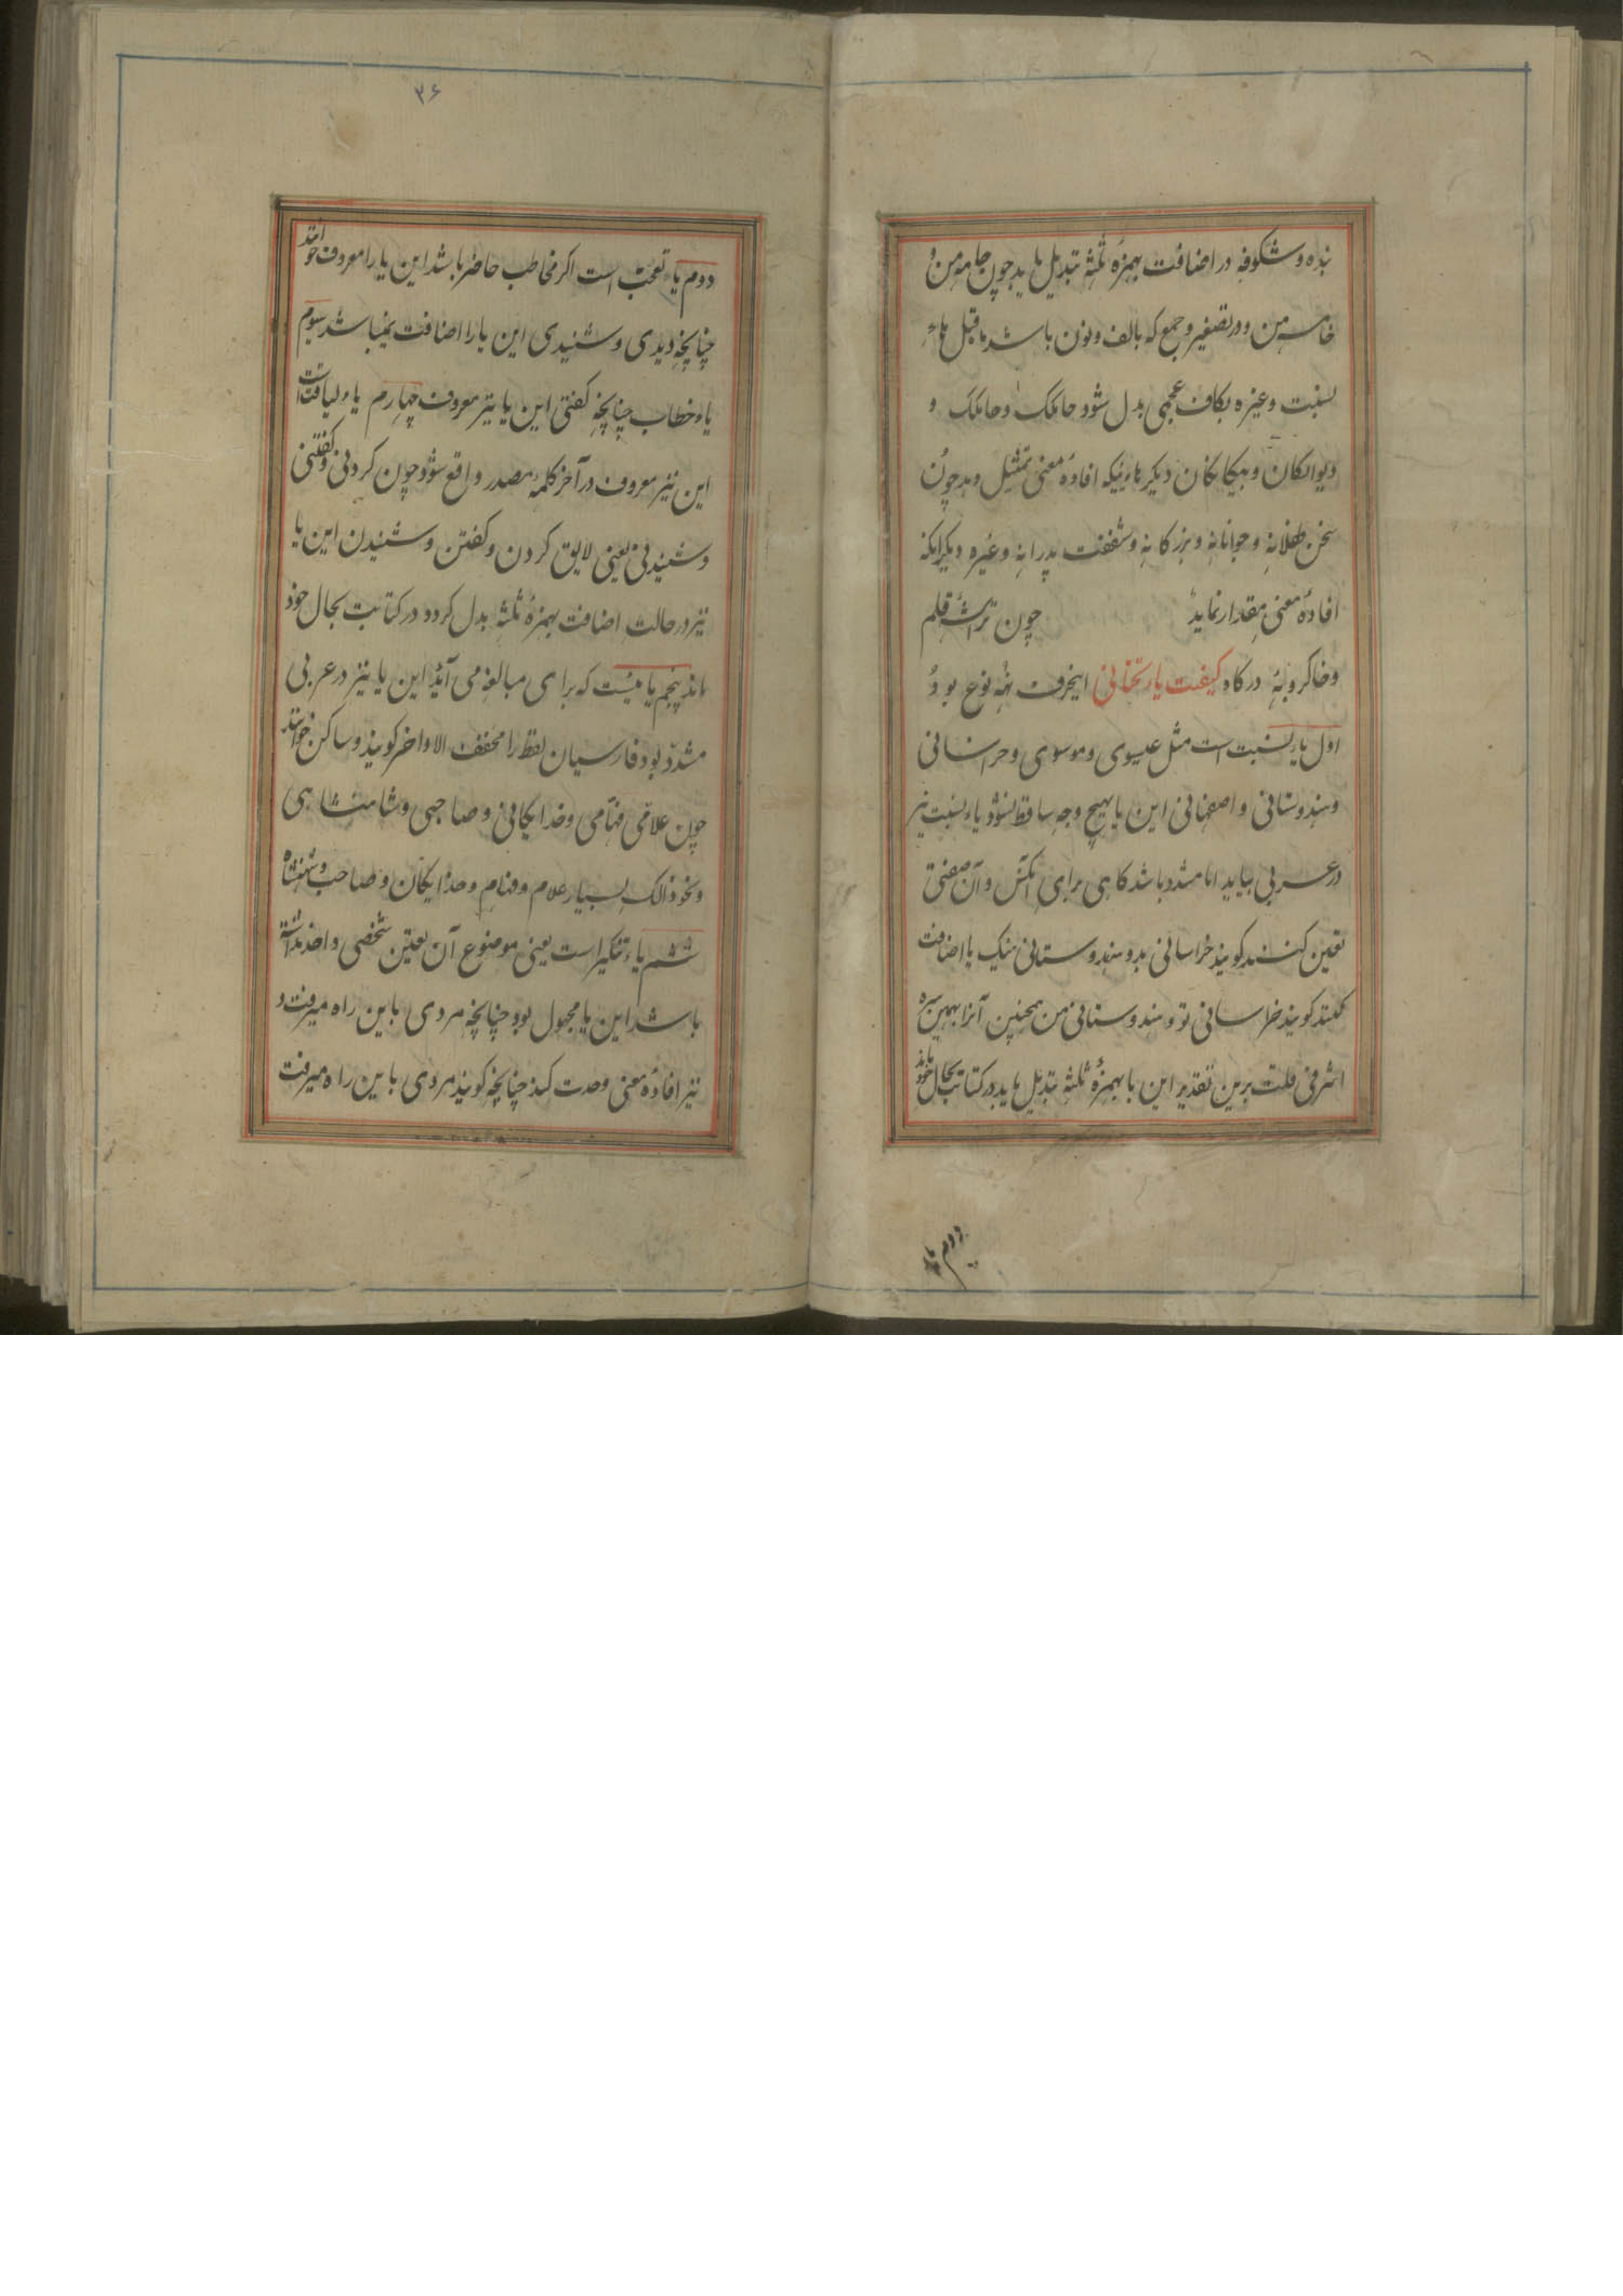 بنده و شکوفه در اضافت بهمزهٔ ثلثه تبدیل یابد چون جامه من و
خامه من و در تصغیر و جمع که بالف و نون باشد ما قبل هاء
نسبت و غیره بکاف عجمی بدل شود جامکک و خامکک و
دیوانکان و بیکانکان دیکر هاءیکه افادهٔ معنی تمثیل دهد چون
سخن طفلانه و جوانانه و بزرکانه و شفقت پدرانه و غیره دیکر آنکه
افادهٔ معنی مقدار نماید چون تراشهٔ قلم
و خاکروبهٔ درکاه کیفیت یاء تحتانی اینحرف نه نوع بود
اول یاء نسبت است مثل عیسوی و موسوی و خراسانی
و هندوستانی و اصفهانی این یا بهیچ وجه ساقط نشود یاء نسبت نیز
در عربی بیاید اما مشدد باشد کاهی برای آنکس و آن صفتی
تعین کنند کویند خراسانی بد و هندوستانی نیک یا اضافت
کنند کویند خراسانی تو و هندوستانی من همچنین آنرا بهین سره
اشرفی قلت برین تقدیر این یا بهمزهٔ ثلثه تبدیل یابد در کتابت بحال خود ماند
دوم یاء
۳۶
دوم یاء تعجب است اکر مخاطب حاضر باشد این یا را معروف خوانند
چنانچه دیدی و شنیدی این یا را اضافت نمیباشد سوم
یاء خطاب چنانچه کفتی این یا نیز معروف چهارم یاء لیاقت است
این نیز معروف در آخر کلمهٔ مصدر واقع شود چون کردنی و کفتنی
و شنیدنی یعنی لایق کردن و کفتن و شنیدن این یا
نیز در حالت اضافت بهمزهٔ ثلثه بدل کردد در کتابت بحال خود
ماند پنجم یائیست که برای مبالغه می آید این یا نیز در عربی
مشدد بود فارسیان لفظ را مخفف الاواخر کویند و ساکن خوانند
چون علامی فهامی و خدایکانی و صاحبی و شاهنشاهی
و نحو ذالک بسیار علام و فهام و خدایکان و صاحب و شهنشاه
ششم یاء تنکیر است یعنی موضوع آن بعتین شخصی واحد نداشته
باشد این یا مجهول بود چنانچه مردی باین راه میرفت و
نیز افادهٔ معنی وحدت کند چنانچه کویند مردی باین راه میرفت